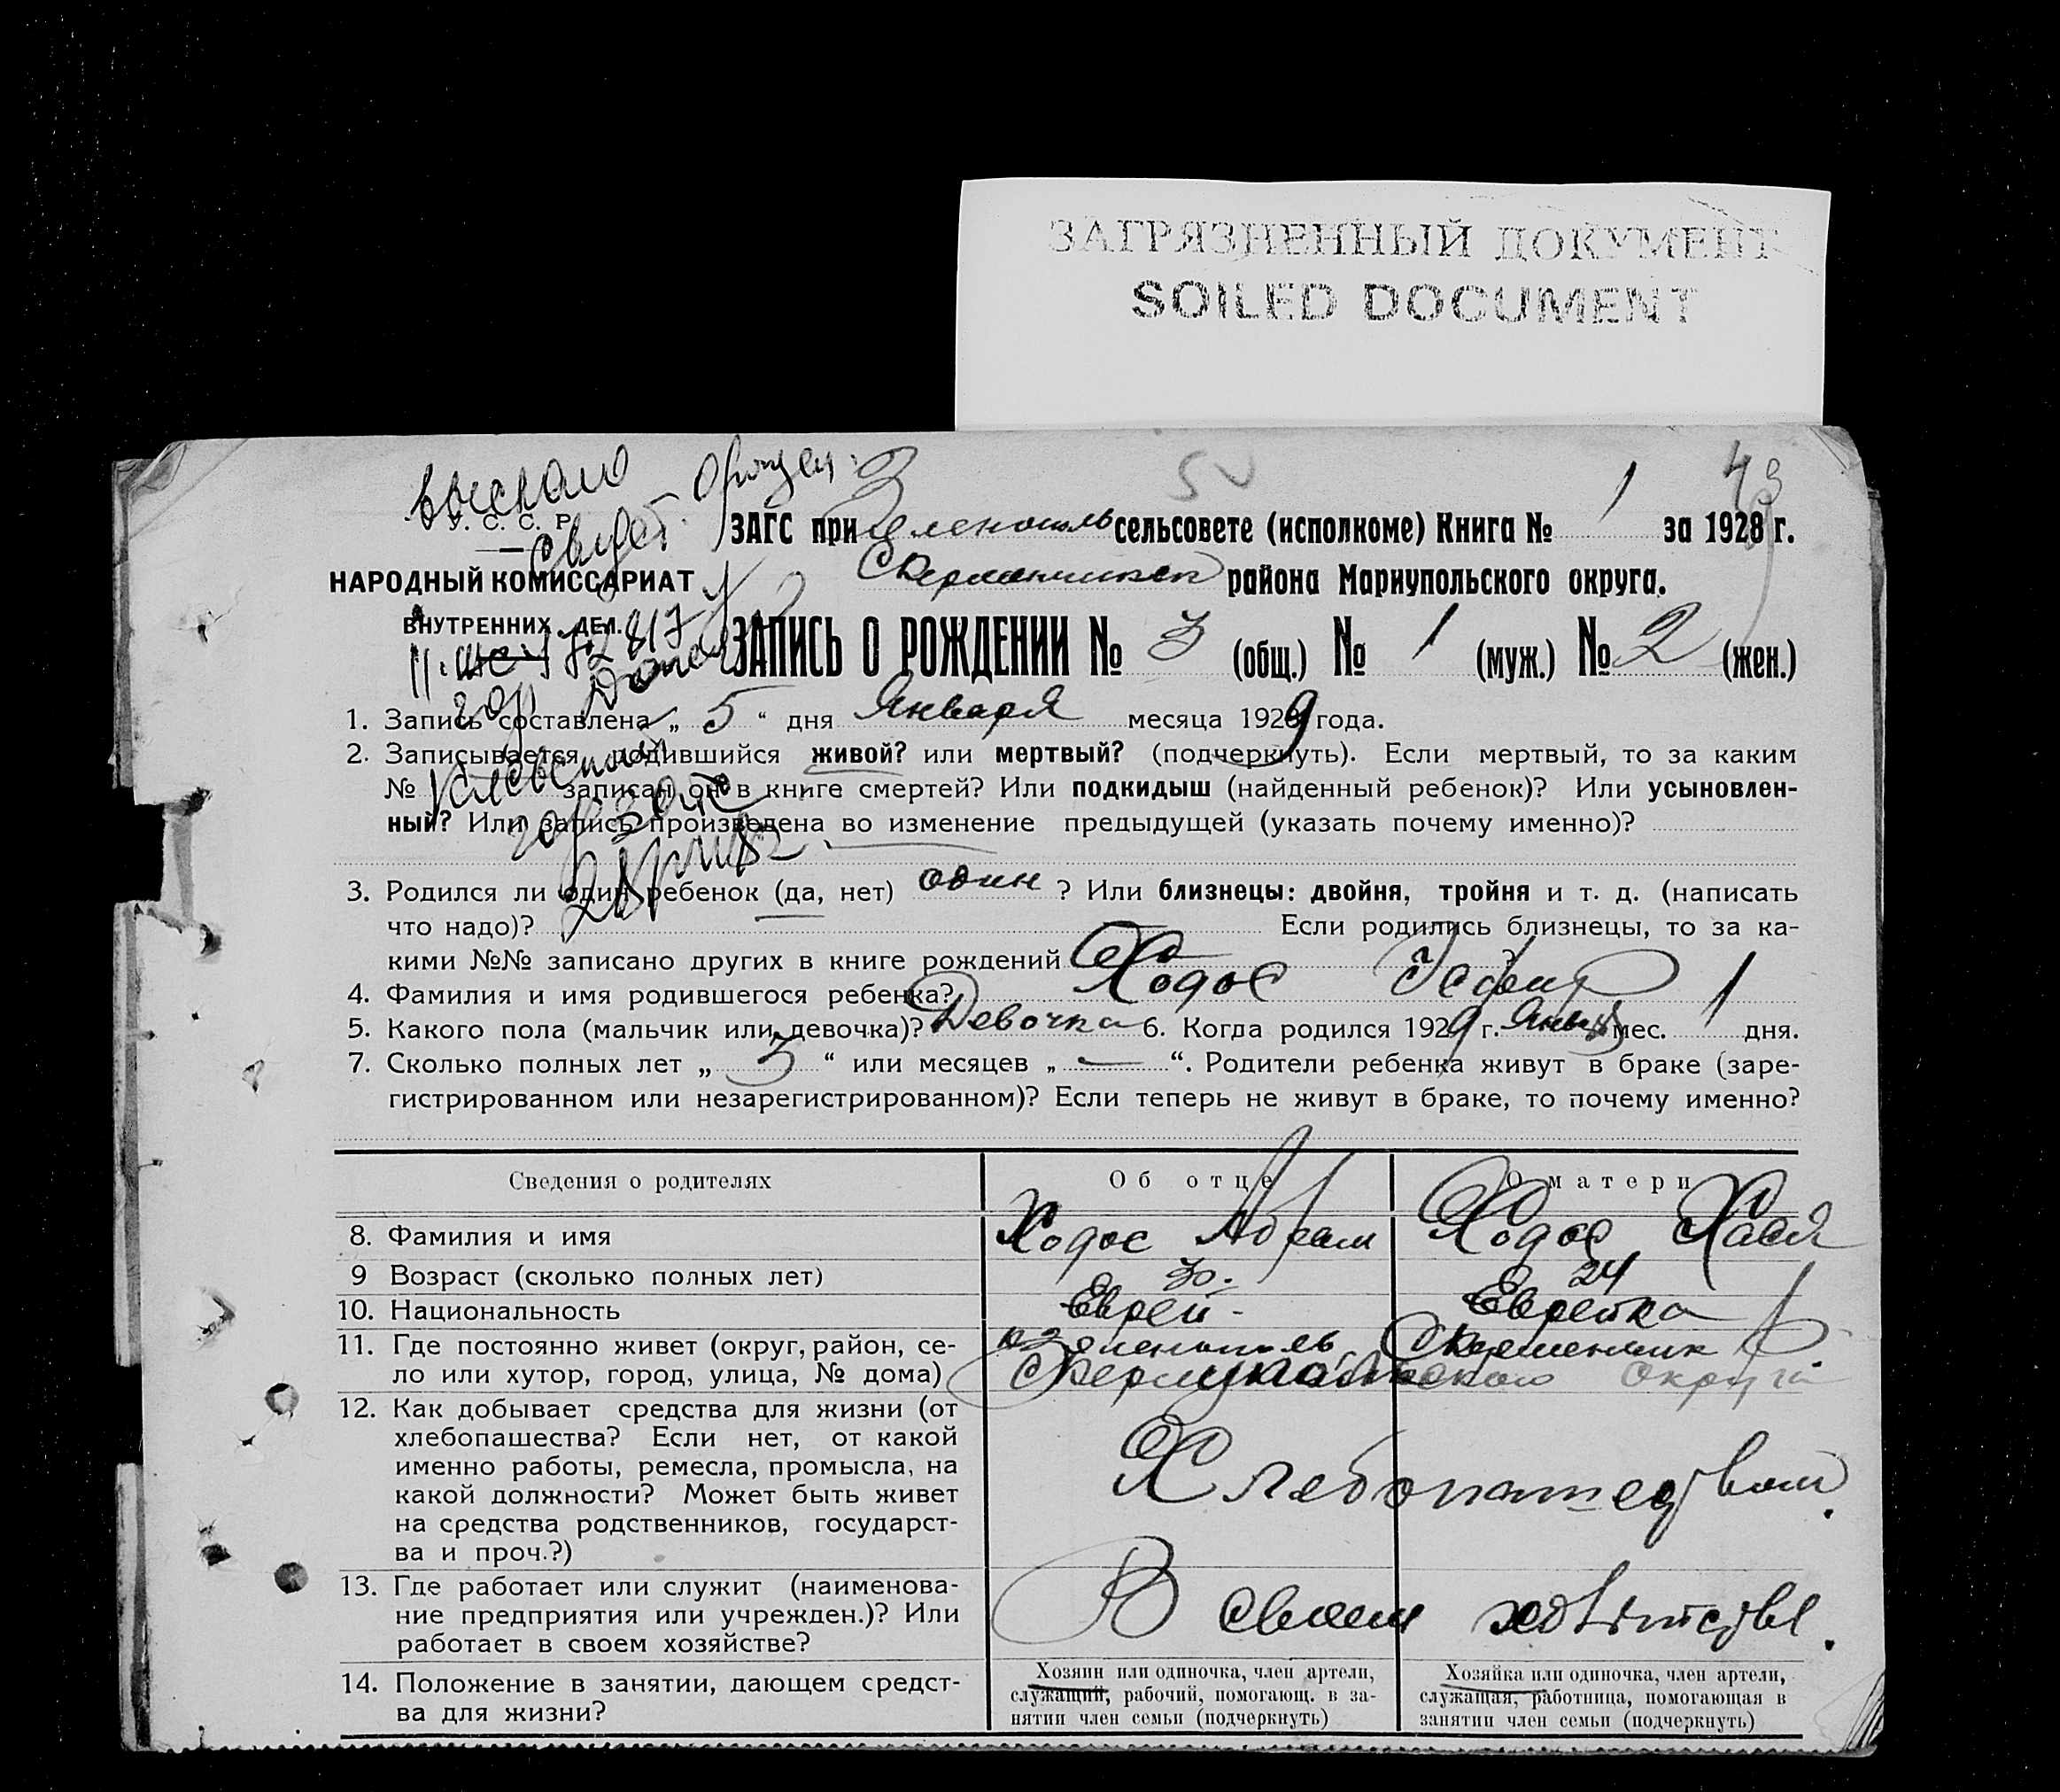 ЗАГРЯЗНЕННЫЙ ДОКУМЕНТ
SOILED DOCUMENT
выслано
У. С. С. Р.
свидет.
ЗАГС при Зеленополь сельсовете (исполкоме) Книга № 1 за 1928 г.
НАРОДНЫЙ КОМИССАРИАТ
района Мариупольского округа.
ВНУТРЕННИХ ДЕЛ.
ЗАПИСЬ О РОЖДЕНИИ № 3 (общ.) № 1 (муж.) № 2 (жен.)
1. Запись составлена „ 5 “ дня Января месяца 1929 года.
2. Записывается родившийся живой? или мертвый? (подчеркнуть). Если мертвый, то за каким
№ записан он в книге смертей? Или подкидыш (найденный ребенок)? Или усыновлен-
ный? Или запись произведена во изменение предыдущей (указать почему именно)?
3. Родился ли один ребенок (да, нет) один ? Или близнецы: двойня, тройня и т. д. (написать
что надо)? Если родились близнецы, то за ка-
кими №№ записано других в книге рождений ?
4. Фамилия и имя родившегося ребенка? Ходос
5. Какого пола (мальчик или девочка)? Девочка 6. Когда родился 1929 г. мес. 1 дня.
7. Сколько полных лет „ 3 “ или месяцев „ — “. Родители ребенка живут в браке (заре-
гистрированном или незарегистрированном)? Если теперь не живут в браке, то почему именно?
Сведения о родителях Об отце О матери
8. Фамилия и имя Ходос Абрам Ходос Хася
9 Возраст (сколько полных лет) 30. 24
10. Национальность Еврей - Еврейка
11. Где постоянно живет (округ, район, се-
ло или хутор, город, улица, № дома) округа
12. Как добывает средства для жизни (от
хлебопашества? Если нет, от какой
именно работы, ремесла, промысла, на
какой должности? Может быть живет
на средства родственников, государст-
ва и проч.?)
Хлебопашеством.
13. Где работает или служит (наименова-
ние предприятия или учрежден.)? Или
работает в своем хозяйстве?
В своем хозяйстве.
14. Положение в занятии, дающем средст-
ва для жизни?
Хозяин или одиночка, член артели,
служащий, рабочий, помогающ. в за-
нятии член семьи (подчеркнуть)
Хозяйка или одиночка, член артели,
служащая, работница, помогающая в
занятии член семьи (подчеркнуть)